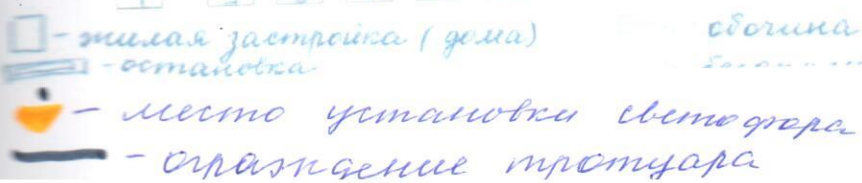 - жилая застройка (дома) обочина
- остановка
- место установки светофора
- ограждение тротуара